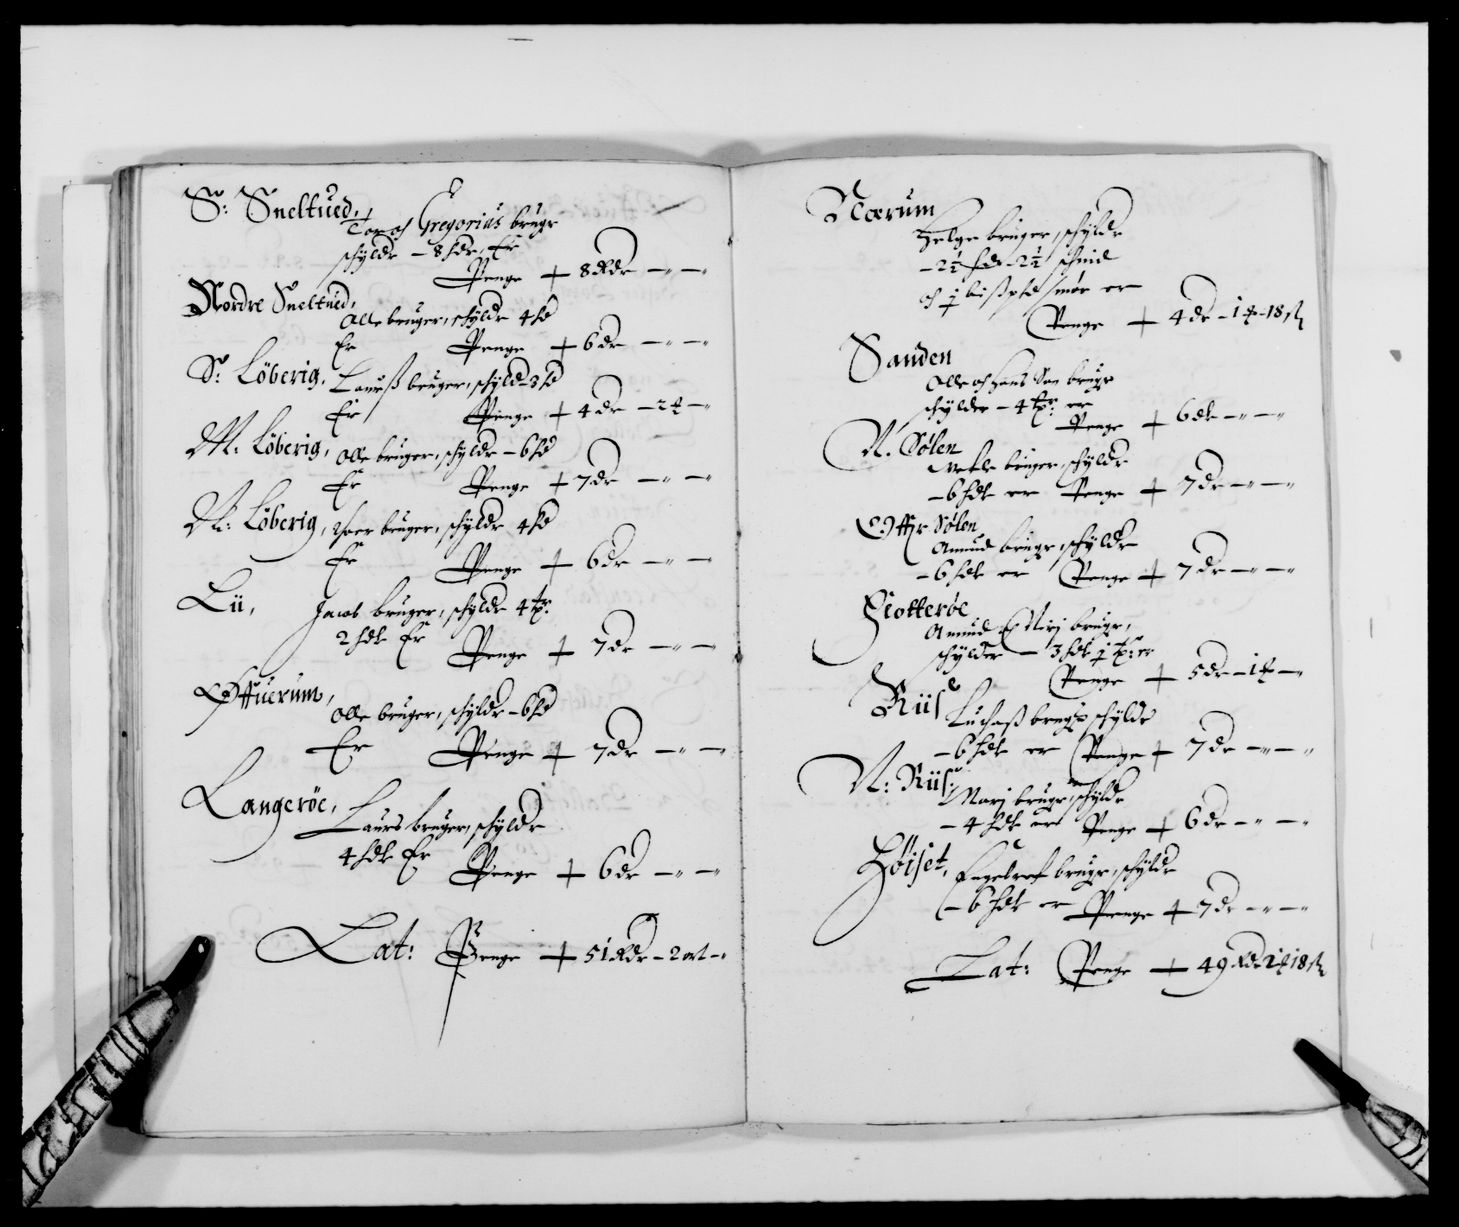 S: Sneltued,
Tor och Gregorius bruger
schylder – 8 sdr, Er
Penge + 8 Rdr – „ – „
Nordre Sneltued,
Olle bruger, schylder 4 sd
Er Penge + 6 dr – „ – „
S: Löberig, Lauriß bruger, schyld – 3 sd
Er Penge + 4 dr – 2 ꝉ – „
M: Löberig, Olle bruger, schylder – 6 sd
Er Penge + 7 dr – „ – „
N: Löberig, bruger, schylder 4 sd
Er Penge + 6 dr – „ – „
Lii, Jacob bruger, schylder 4 tpr:
2 sdr Er Penge + 7 dr – „ – „
Øffuerum,
Olle bruger, schylder – 6 sd
Er Penge + 7 dr – „ – „
Langeröe,
Laurs bruger, schylder
4 sdr Er Penge + 6 dr – „ – „
Lat: Penge + 51 Rdr – 2 ort – „
Nærum
Helge bruger, schylder
– 2½ sdr – 2½ schind
och ½ bißpd smör er
Penge + 4 dr – 1 ꝉ – 18 ß
Sanden
Olle och Hans Søn bruger
schylder – 4 tpr: er
Penge + 6 dr – „ – „
N. Sölen
bruger, schylder
– 6 sdr er Penge + 7 dr – „ – „
Øffr Sölen
Amund bruger, schylder
– 6 sdr er Penge + 7 dr – „ – „
Slotteröe
Amund bruger,
schylder – 3 sdr ½ tpr: er
Penge + 5 dr – 1 ꝉ – „
Riis
Luchaß bruger schylder
– 6 sdr er Penge + 7 dr – „ – „
N: Riis,
bruger, schylder
– 4 sdr er Penge + 6 dr – „ – „
Höiset, Engebret bruger, schylder
– 6 sdr er Penge + 7 dr – „ – „
Lat: Penge + 49 Rdr 2 ꝉ 18 ß